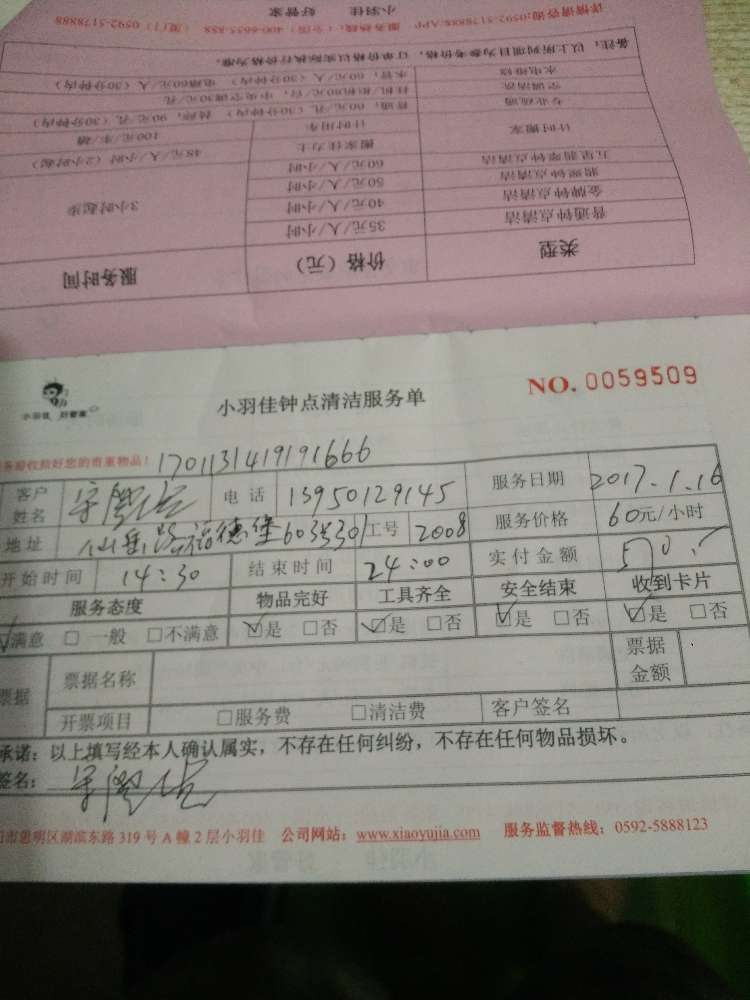 详情请咨询:0592-5178888·APP 服务热线:(全国) 400-6655-858 (厦门) 0592-5178888
小羽佳 好管家
备注:以上所列项目为参考价格,订单价格以实际执行价格为准。
水电维修 水管,60元/人(30分钟内) 电路60元/人(30分钟内)
空调清洗
专业疏通 普通,60元/孔(30分钟内)
计时搬家 计时用车 100元/车/趟
搬家佳力士 48元/人/小时(2小时起)
五星翡翠钟点清洁 60元/人/小时
翡翠钟点清洁 50元/人/小时
金牌钟点清洁 40元/人/小时
普通钟点清洁 35元/人/小时
3小时起步
类型 价格(元) 服务时间
小羽佳 好管家
小羽佳钟点清洁服务单
NO. 0059509
务前收拾好您的贵重物品!
1701131419191666
客户姓名 电话 13950129145 服务日期 2017.1.16
地址 仙岳路福德堡603 301 工号 2008 服务价格 60元/小时
开始时间 14:30 结束时间 24:00 实付金额 570
服务态度 物品完好 工具齐全 安全结束 收到卡片
☑满意 □一般 □不满意 ☑是 □否 ☑是 □否 ☑是 □否 ☑是 □否
票据 票据名称 票据金额
开票项目 □服务费 □清洁费 客户签名
承诺:以上填写经本人确认属实,不存在任何纠纷,不存在任何物品损坏。
签名:
市思明区湖滨东路 319 号 A 幢 2 层小羽佳 公司网站:www.xiaoyujia.com 服务监督热线:0592-5888123